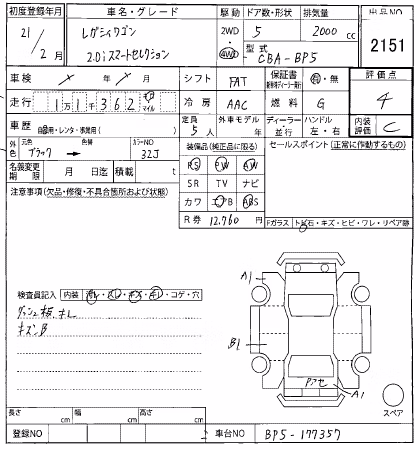 初度登録年月 車名・グレード 駆動 ドア数・形状 排気量 出品NO
21/2月 レガシィワゴン 2WD 5 2000 cc 2151
2.0iスマートセレクション 4WD 型式 CBA-BP5
車検 / / シフト FAT 保証書 有・無 評価点
走行 1万1千362 キロ マイル 冷房 AAC 燃料 G 4
車歴 自家用・レンタ・事業用( ) 定員 5人 外車モデル 年 ディーラー・並行 ハンドル 左・右 内装評価 C
外色 元色 ブラック → 色替 カラーNO 32J 装備品(純正品に限る) セールスポイント(正常に作動するもの)
名義変更期限 月 日迄 積載 t PS PW AW
SR TV ナビ
注意事項(欠品・修復・不具合箇所および状態) カワ エアB ABS
R券 12,760円 Fガラス トビ石・キズ・ヒビ・ワレ・リペア跡
A1
検査員記入 内装 汚レ・スレ・キズ・キレ・コゲ・穴
ダッシュ板キレ
キズンB
B1
Pアセ
A1
スペア
長さ cm 幅 cm 高さ cm
登録NO 車台NO BP5-177357